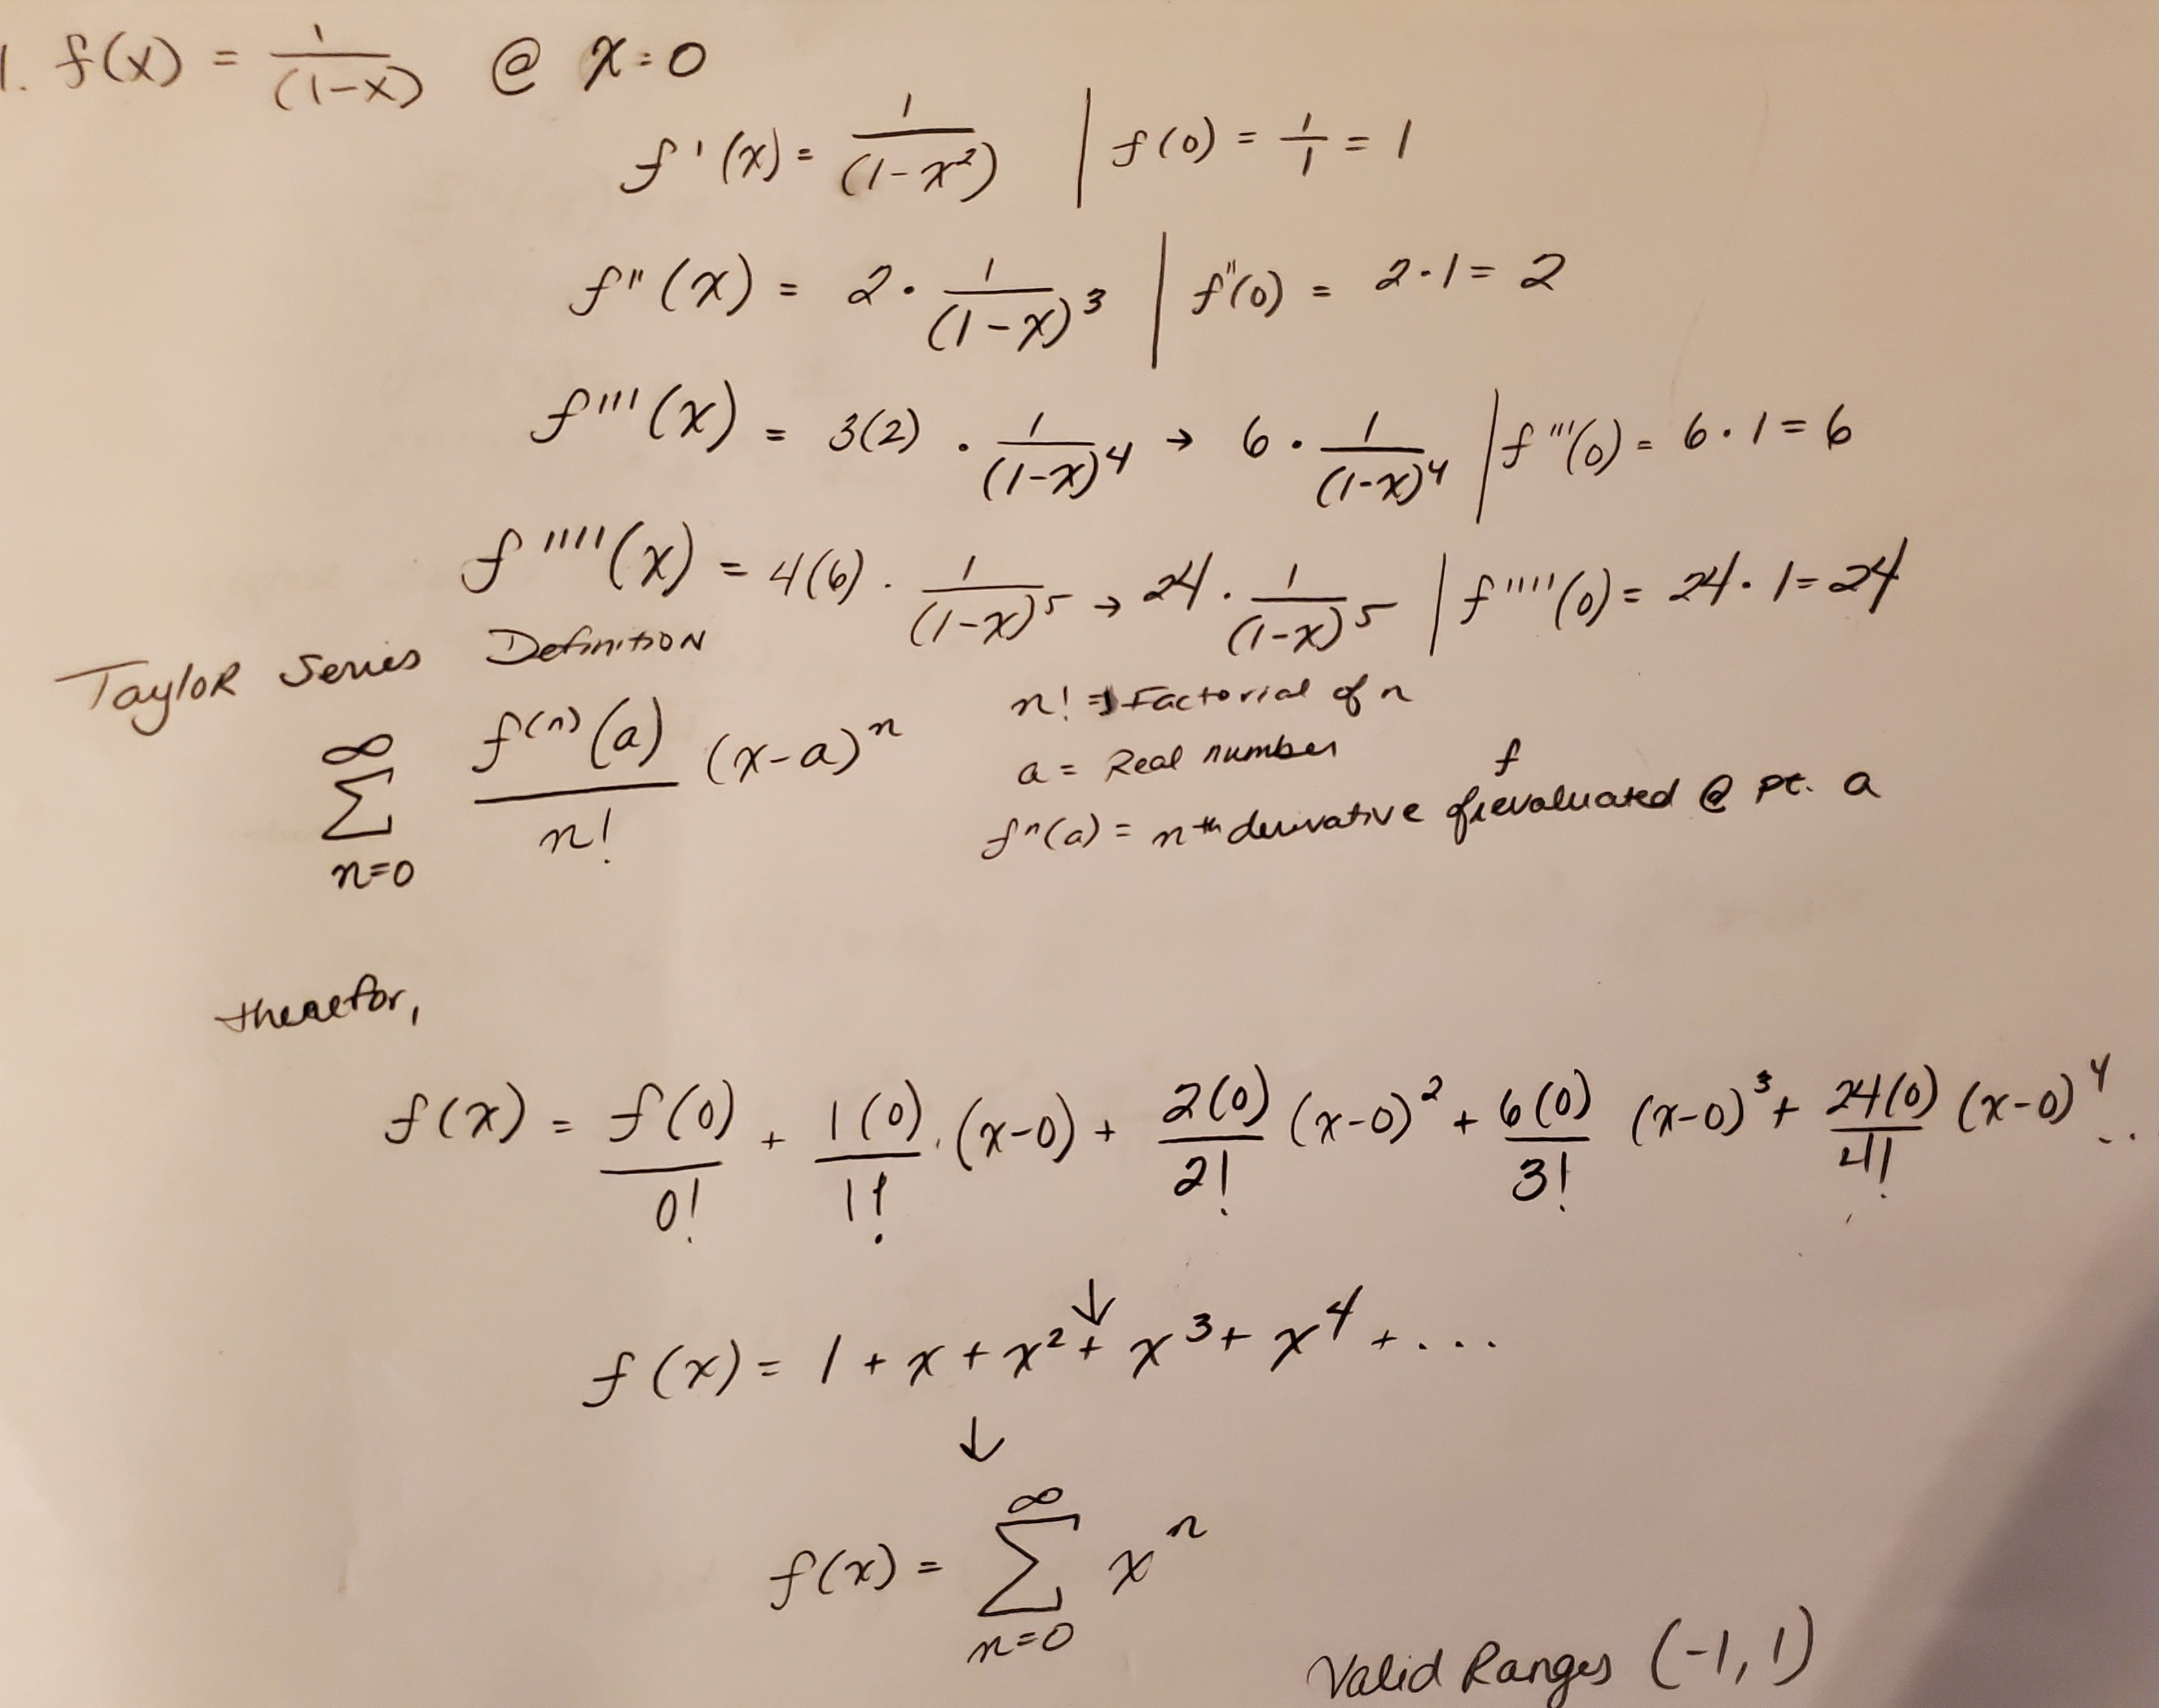 1. f(x) = 1/(1-x) @ x=0
f'(x) = 1/(1-x²) | f(0) = 1/1 = 1
f''(x) = 2 · 1/(1-x)³ | f''(0) = 2·1 = 2
f'''(x) = 3(2) · 1/(1-x)⁴ → 6 · 1/(1-x)⁴ | f'''(0) = 6·1 = 6
f''''(x) = 4(6) · 1/(1-x)⁵ → 24 · 1/(1-x)⁵ | f'''''(0) = 24·1 = 24
Taylor Series Definition
∞ Σ n=0 f⁽ⁿ⁾(a)/n! (x-a)ⁿ
n! => Factorial of n
a = Real number
fⁿ(a) = nth derivative of f evaluated @ pt. a
therefor,
f(x) = f(0)/0! + 1(0)/1! · (x-0) + 2(0)/2! (x-0)² + 6(0)/3! (x-0)³ + 24(0)/4! (x-0)⁴ ...
↓
f(x) = 1 + x + x² + x³ + x⁴ + ...
↓
f(x) = ∞ Σ n=0 xⁿ
Valid Ranges (-1, 1)